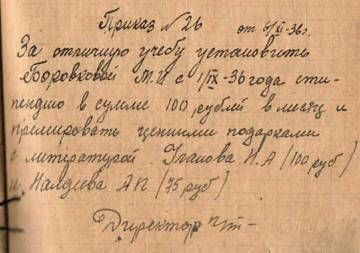 Приказ № 26 от 6/XI-36г.
За отличную учебу установить
Боровковой М.И с 1/IX-36 года сти-
пендию в сумме 100 рублей в месяц и
премировать ценными подарками
с литературой. И.А (100 руб)
и А П (75 руб)
Директор